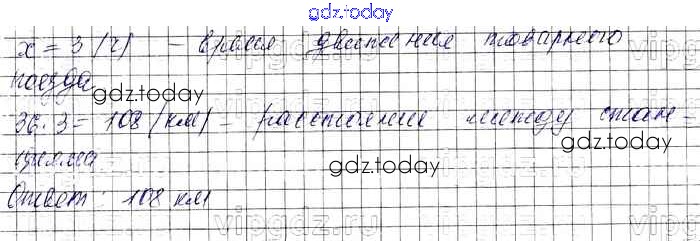 gdz.today
x = 3 (ч) – время движения товарного
поезда
gdz.today
36 · 3 = 108 (км) – расстояние между стан-
gdz.today
циями
gdz.today
Ответ: 108 км
vipgdz.ru